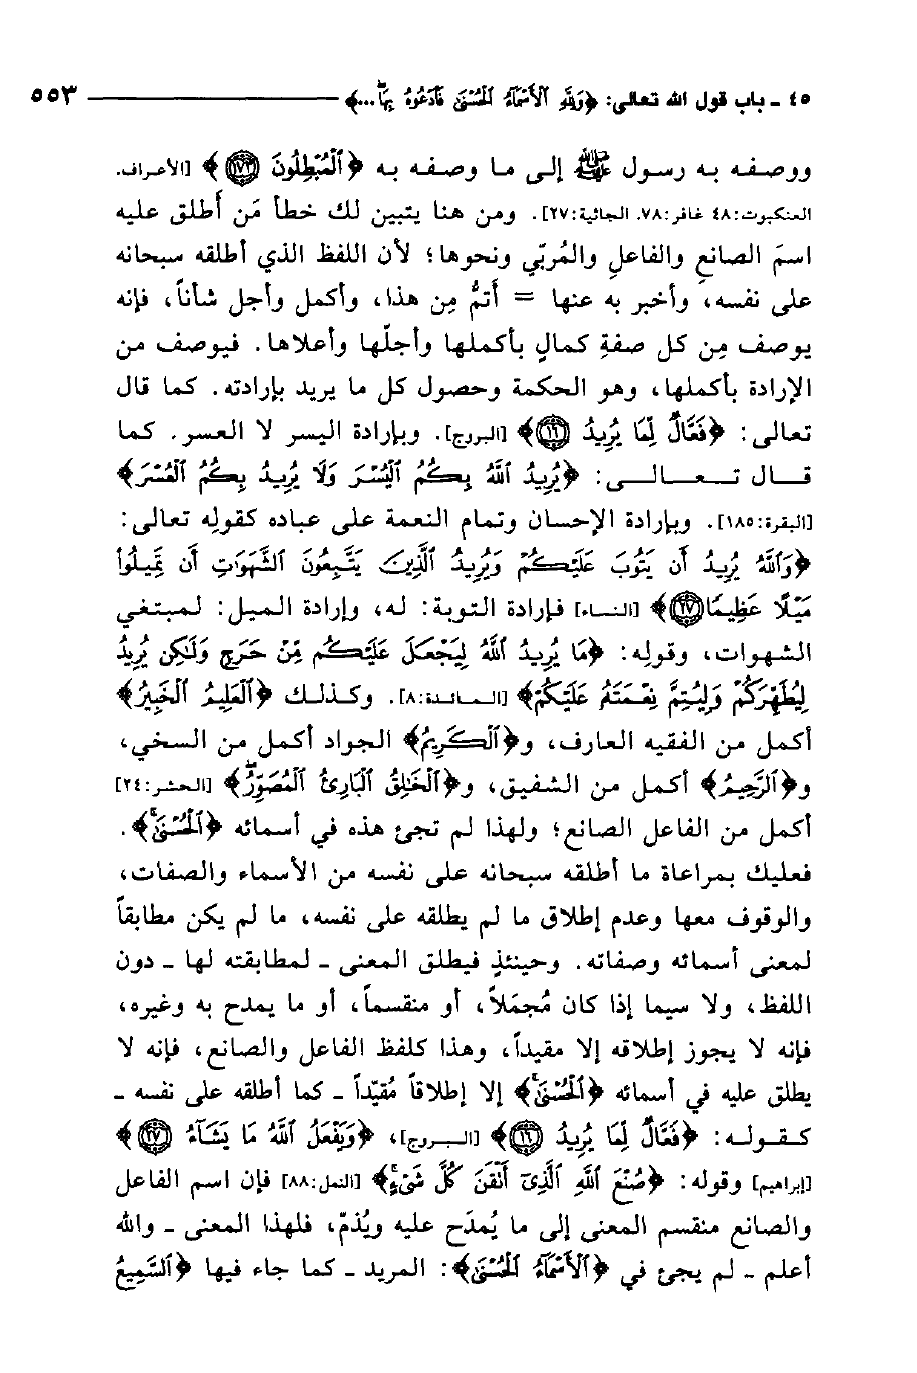 ٤٥ ـ باب قول الله تعالى: ﴿وَلِلَّهِ ٱلْأَسْمَآءُ ٱلْحُسْنَىٰ فَٱدْعُوهُ بِهَا ...﴾ ٥٥٣
ووصفه به رسول ﷺ إلى ما وصفه به ﴿ٱلْمُبْطِلُونَ ١٧٣﴾ [الأعراف.
العنكبوت: ٤٨ غافر: ٧٨. الجاثية: ٢٧]. ومن هنا يتبين لك خطأ مَن أَطلق عليه
اسمَ الصانعِ والفاعلِ والمُربّي ونحوها؛ لأن اللفظ الذي أطلقه سبحانه
على نفسه، وأخبر به عنها = أَتمُّ مِن هذا، وأكمل وأجل شأناً، فإنه
يوصف مِن كل صفةِ كمالٍ بأكملها وأجلّها وأعلاها. فيوصف من
الإرادة بأكملها، وهو الحكمة وحصول كل ما يريد بإرادته. كما قال
تعالى: ﴿فَعَّالٌ لِّمَا يُرِيدُ ١٦﴾ [البروج]. وبإرادة اليسر لا العسر. كما
قال تعالى: ﴿يُرِيدُ ٱللَّهُ بِكُمُ ٱلْيُسْرَ وَلَا يُرِيدُ بِكُمُ ٱلْعُسْرَ﴾
[البقرة: ١٨٥]. وبإرادة الإحسان وتمام النعمة على عباده كقولِه تعالى:
﴿وَٱللَّهُ يُرِيدُ أَن يَتُوبَ عَلَيْكُمْ وَيُرِيدُ ٱلَّذِينَ يَتَّبِعُونَ ٱلشَّهَوَٰتِ أَن تَمِيلُوا۟
مَيْلًا عَظِيمًا ٢٧﴾ [النساء] فإرادة التوبة: له، وإرادة الميل: لمبتغي
الشهوات، وقولِه: ﴿مَا يُرِيدُ ٱللَّهُ لِيَجْعَلَ عَلَيْكُم مِّنْ حَرَجٍ وَلَٰكِن يُرِيدُ
لِيُطَهِّرَكُمْ وَلِيُتِمَّ نِعْمَتَهُ عَلَيْكُمْ﴾ [المائدة: ٨]. وكذلك ﴿ٱلْعَلِيمُ ٱلْخَبِيرُ﴾
أكمل من الفقيه العارف، و﴿ٱلْكَرِيمُ﴾ الجواد أكمل من السخي،
و﴿ٱلرَّحِيمُ﴾ أكمل من الشفيق، و﴿ٱلْخَٰلِقُ ٱلْبَارِئُ ٱلْمُصَوِّرُ﴾ [الحشر: ٢٤]
أكمل من الفاعل الصانع؛ ولهذا لم تجئ هذه في أسمائه ﴿ٱلْحُسْنَىٰ﴾.
فعليك بمراعاة ما أطلقه سبحانه على نفسه من الأسماء والصفات،
والوقوف معها وعدم إطلاق ما لم يطلقه على نفسه، ما لم يكن مطابقاً
لمعنى أسمائه وصفاته. وحينئذٍ فيطلق المعنى ـ لمطابقته لها ـ دون
اللفظ، ولا سيما إذا كان مُجمَلاً، أو منقسماً، أو ما يمدح به وغيره،
فإنه لا يجوز إطلاقه إلا مقيداً، وهذا كلفظ الفاعل والصانع، فإنه لا
يطلق عليه في أسمائه ﴿ٱلْحُسْنَىٰ﴾ إلا إطلاقاً مُقيّداً ـ كما أطلقه على نفسه ـ
كقوله: ﴿فَعَّالٌ لِّمَا يُرِيدُ ١٦﴾ [البروج]، ﴿وَيَفْعَلُ ٱللَّهُ مَا يَشَآءُ ٢٧﴾
[إبراهيم] وقوله: ﴿صُنْعَ ٱللَّهِ ٱلَّذِىٓ أَتْقَنَ كُلَّ شَىْءٍ﴾ [النمل: ٨٨] فإن اسم الفاعل
والصانع منقسم المعنى إلى ما يُمدَح عليه ويُذمّ، فلهذا المعنى ـ والله
أعلم ـ لم يجئ في ﴿ٱلْأَسْمَآءُ ٱلْحُسْنَىٰ﴾: المريد ـ كما جاء فيها ﴿ٱلسَّمِيعُ